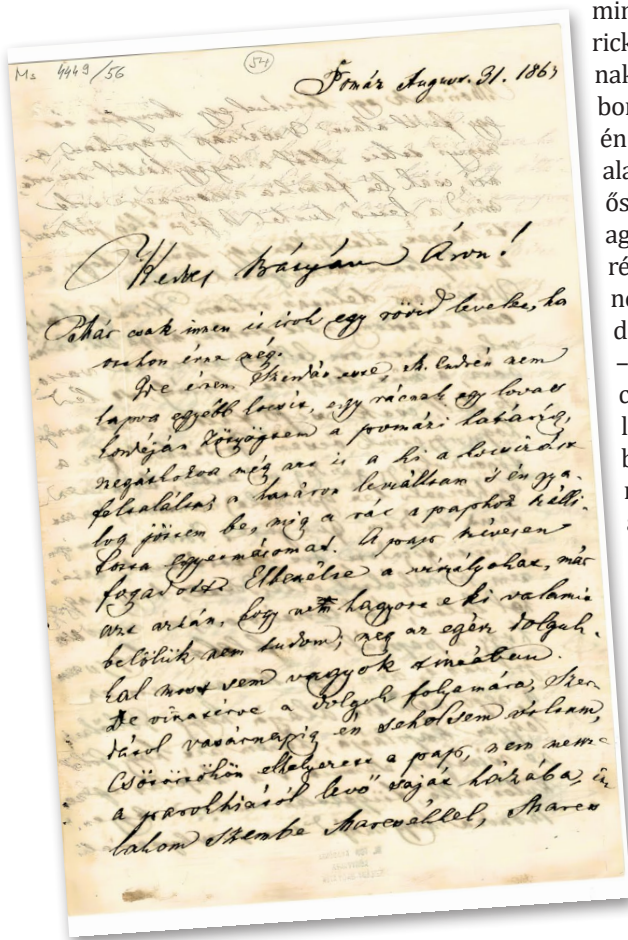 Ms 4449/56
54
Pomáz Augusz. 31. 1863
Kedves Bátyám Áron!
csak innen is irok egy rövid levelet, ha
otthon érne még.
Ide érém. Szerdán este, St. Endrén nem
kapva egyébb kocsit, egy rácnak egy lovas
kordéján zötyögtem a pomázi határig,
megátkozva még azt is a ki a kocsizást
feltalálta; a határon leszálltam s én gya-
log jöttem be, mig a rác a paphoz szálli-
totta egyetmásomat. A pap szivesen
fogadott. Elbeszélte a viszályokat, már
azt aztán, hogy nem hagyott e ki valamit
belőlük nem tudom; meg az egész dolguk-
kal most sem vagyok tisztában.
De visszatérve a dolgok folyamára, Szer-
dától vasárnapig én seholsem voltam,
elhelyezett a pap, nem messze
a parochiától levő saját házába, itt
lakom szembe
min
rick
nak
bor
én
ala
ős
ag
ré
ne
d
–
c
l
b